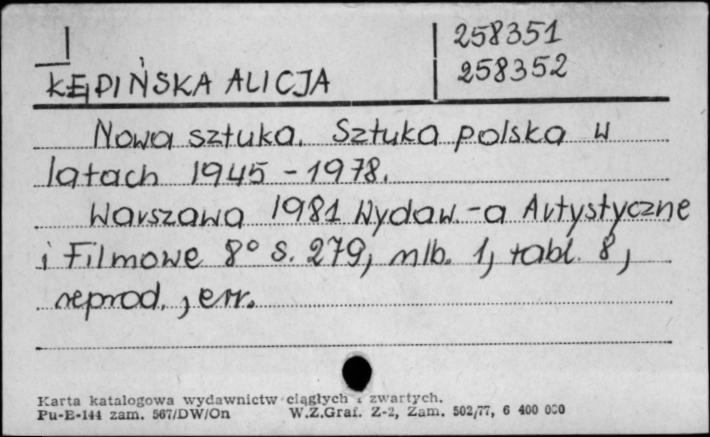 258351
KĘPIŃSKA ALICJA 258352
Nowa sztuka. Sztuka polska w
latach 1945-1978.
Warszawa 1981 Wydaw.-a Artystyczne
i Filmowe 8° s. 279, nlb. 1, tabl. 8,
reprod., err.
Karta katalogowa wydawnictw ciągłych i zwartych.
Pu-B-144 zam. 567/DW/On W.Z.Graf. Z-2, Zam. 502/77, 6 400 000